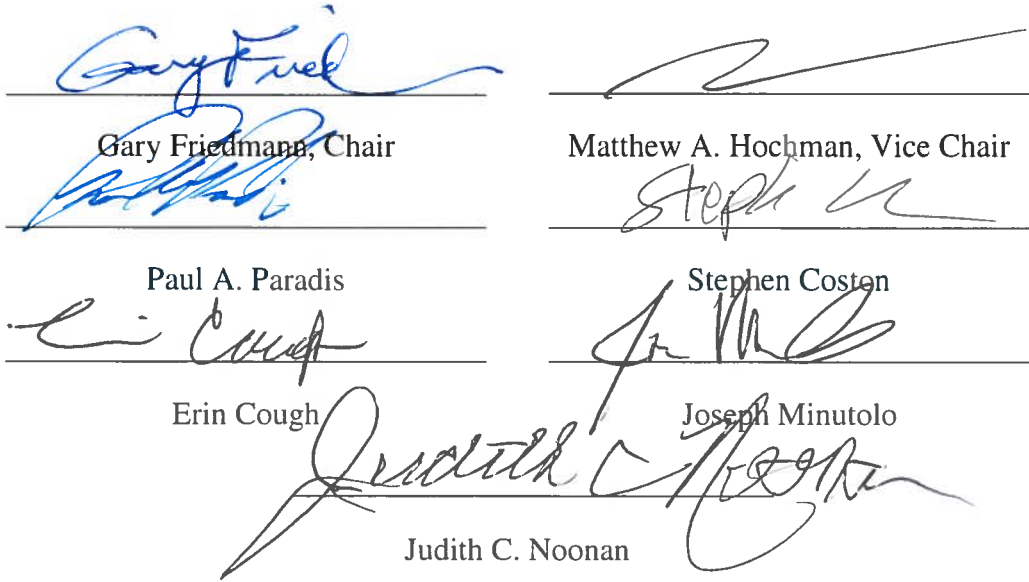 Gary Fried
Gary Friedmann, Chair
Matthew A. Hochman, Vice Chair
Steph
Paul A. Paradis
Stephen Coston
Erin Cough
Erin Cough
Joseph Minutolo
Judith C Noonan
Judith C. Noonan